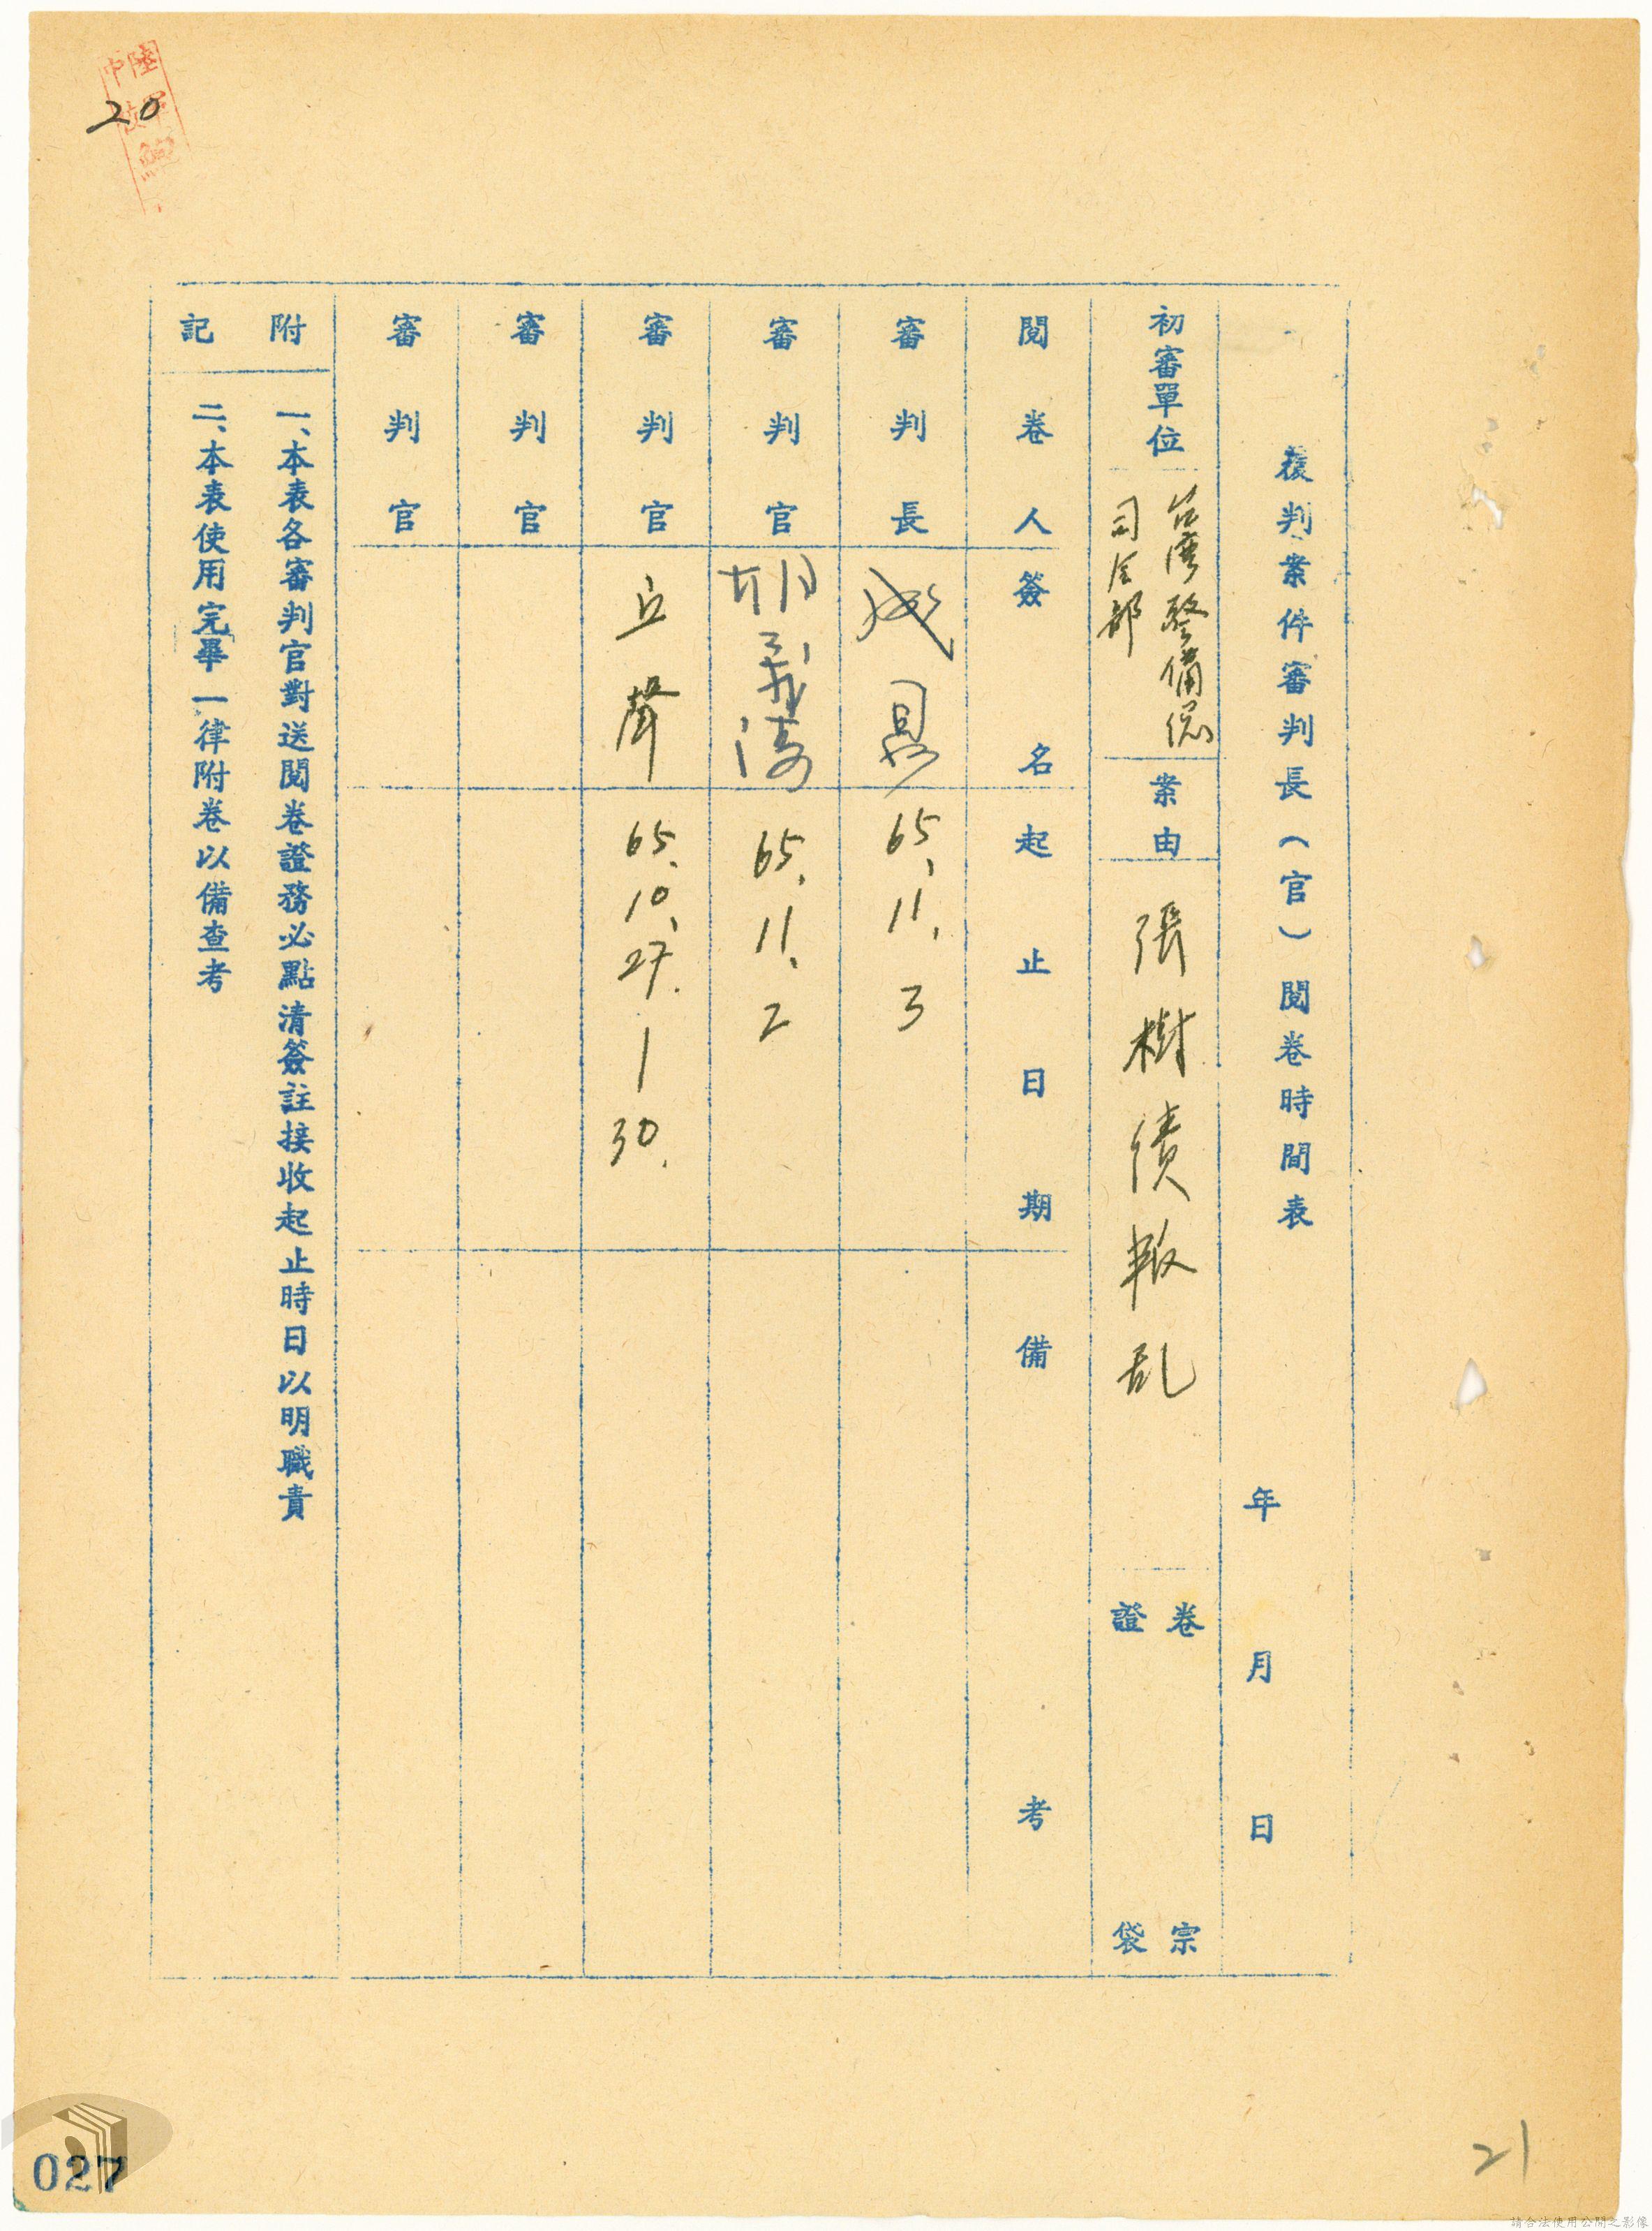 覆判案件審判長（官）閱卷時間表
年 月 日
初審單位
台灣警備總
司令部
案由
張樹績叛乱
卷 宗
證 袋
閱卷人簽名起止日期備考
審判長
65.11.3
審判官
胡
65.11.2
審判官
丘聲
65.10.27.｜30.
審判官
審判官
附記
一、本表各審判官對送閱卷證務必點清簽註接收起止時日以明職責
二、本表使用完畢一律附卷以備查考
20
21
027
請合法使用公開之影像